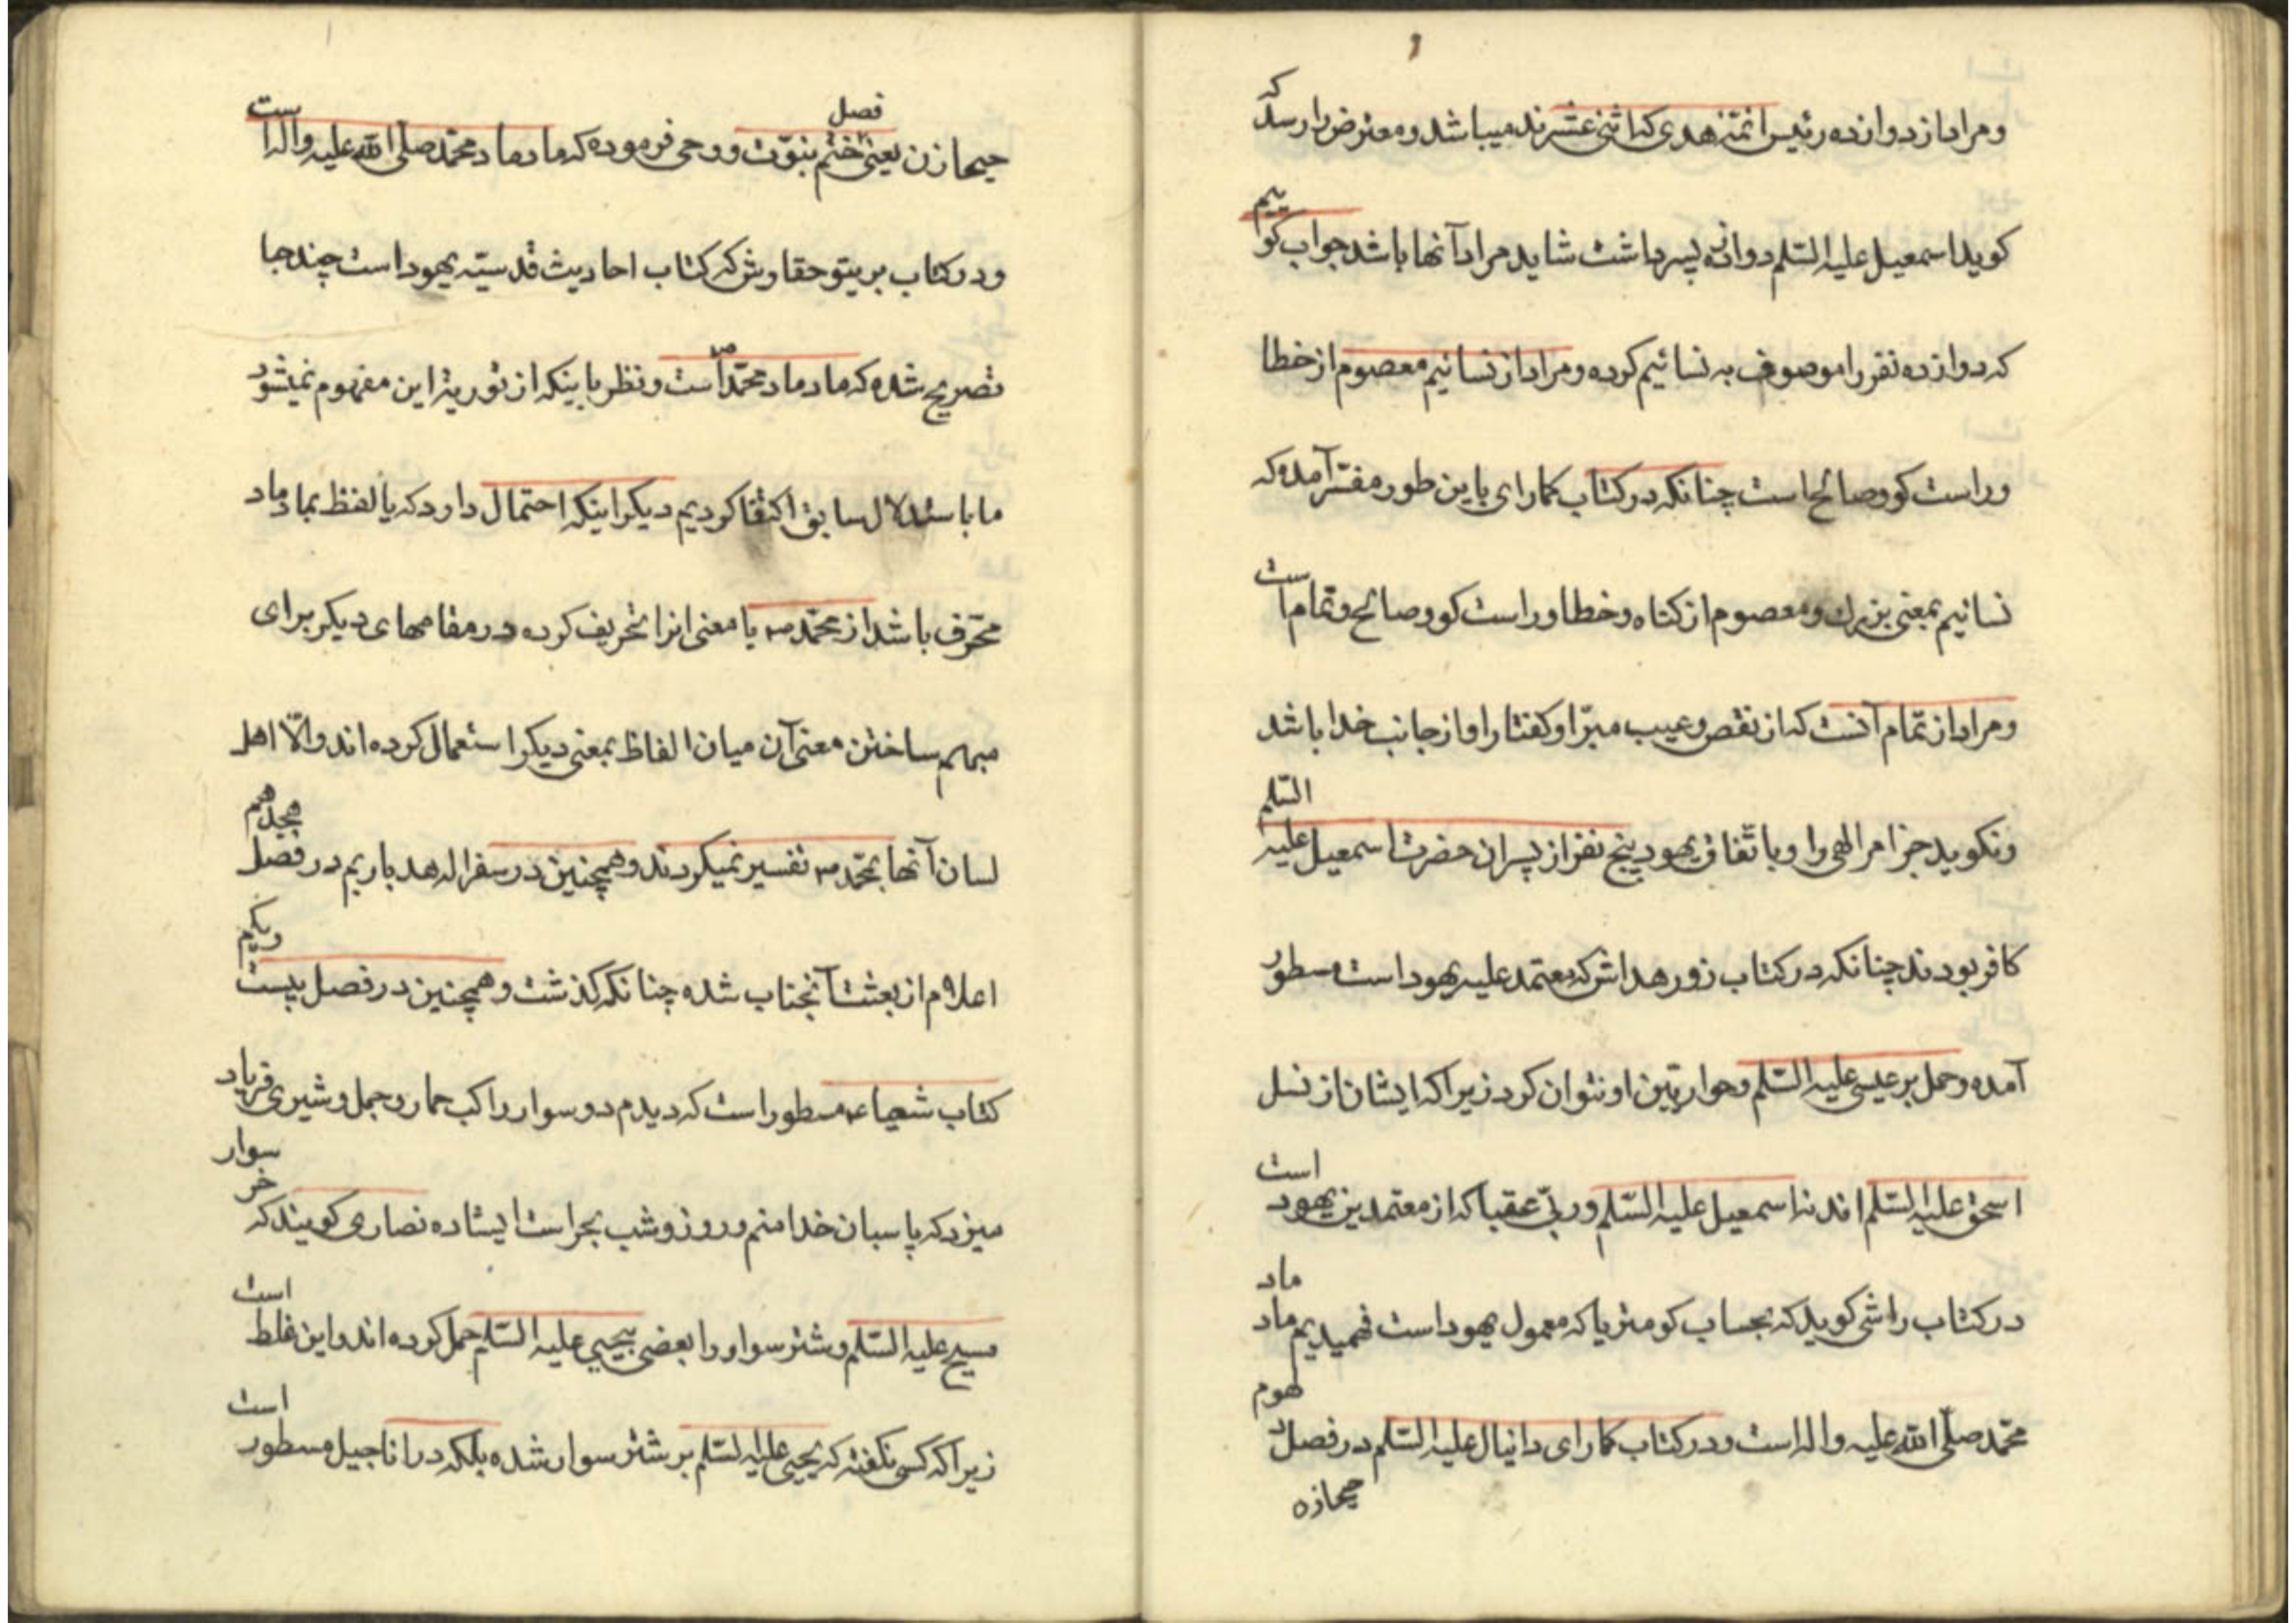 ومراد از دوازده رئیس ائمّهٔ هدی که اثنی عشرند میباشد ومعترض را رسد که
کوید اسمعیل علیه السّلم دوازده پسر داشت شاید مراد آنها باشد جواب کوئیم
که دوازده نفر را موصوف به نسائیم کرده ومراد از نسائیم معصوم از خطا
وراست کو وصالح است چنانکه در کتاب کمارای باین طور مفسّر آمده که
نسائیم بمعنی بزرك ومعصوم از کناه وخطا وراست کو وصالح وتمام است
ومراد از تمام آنست که از نقص وعیب مبرّا وکفتار او از جانب خدا باشد
ونکوید جز امر الهی را وباتّفاق یهود پنج نفر از پسران حضرت اسمعیل علیه السّلم
کافر بودند چنانکه در کتاب زور هداش که معتمد علیه یهود است مسطور
آمده وحمل بر عیسی علیه السّلم وحواریّین او نتوان کرد زیرا که ایشان از نسل
اسحق علیه السّلم اند نه اسمعیل علیه السّلم وربّی عقبا که از معتمدین یهود است
در کتاب راشی کوید که بحساب کومتریا که معمول یهود است فهمیدیم ماد ماد
محمّد صلّی الله علیه واله است ودر کتاب کمارای دانیال علیه السّلم در فصل دهوم
حیحازه
حیحازن یعنی فصل ختم بنوّت ووحی فرموده که ماد ماد محمّد صلّی الله علیه واله است
ودر کتاب بریتو حقاویش که کتاب احادیث قدسیّه یهود است چند جا
تصریح شده که ماد ماد محمّد ص است ونظر باینکه از توریة این مفهوم نمیشود
ما باستدلال سابق اکتفا کردیم دیکر اینکه احتمال دارد که یا لفظ بماد ماد
محرّف باشد از محمّد ص یا معنی انرا تحریف کرده در مقامهای دیکر برای
مبهم ساختن معنی آن میان الفاظ بمعنی دیکر استعمال کرده اند والّا اهل
لسان آنها بمحمّد ص تفسیر نمیکردند وهمچنین در سفر اله هدباریم در فصل هیجدهم
اعلام از بعثت آنجناب شده چنانکه کذشت وهمچنین در فصل بیست ویکم
کتاب شعیاء مسطور است که دیدم دو سوار راکب حمار وجمل وشیری فریاد
میزد که پاسبان خدا منم وروز وشب بحراست ایستاده نصاری کویند که خر سوار
مسیح علیه السّلم وشتر سوار را بعضی بیحیی علیه السّلم حمل کرده اند واین غلط است
زیرا که کسی نکفته که یحیی علیه السّلم بر شتر سوار شده بلکه در اناجیل مسطور است